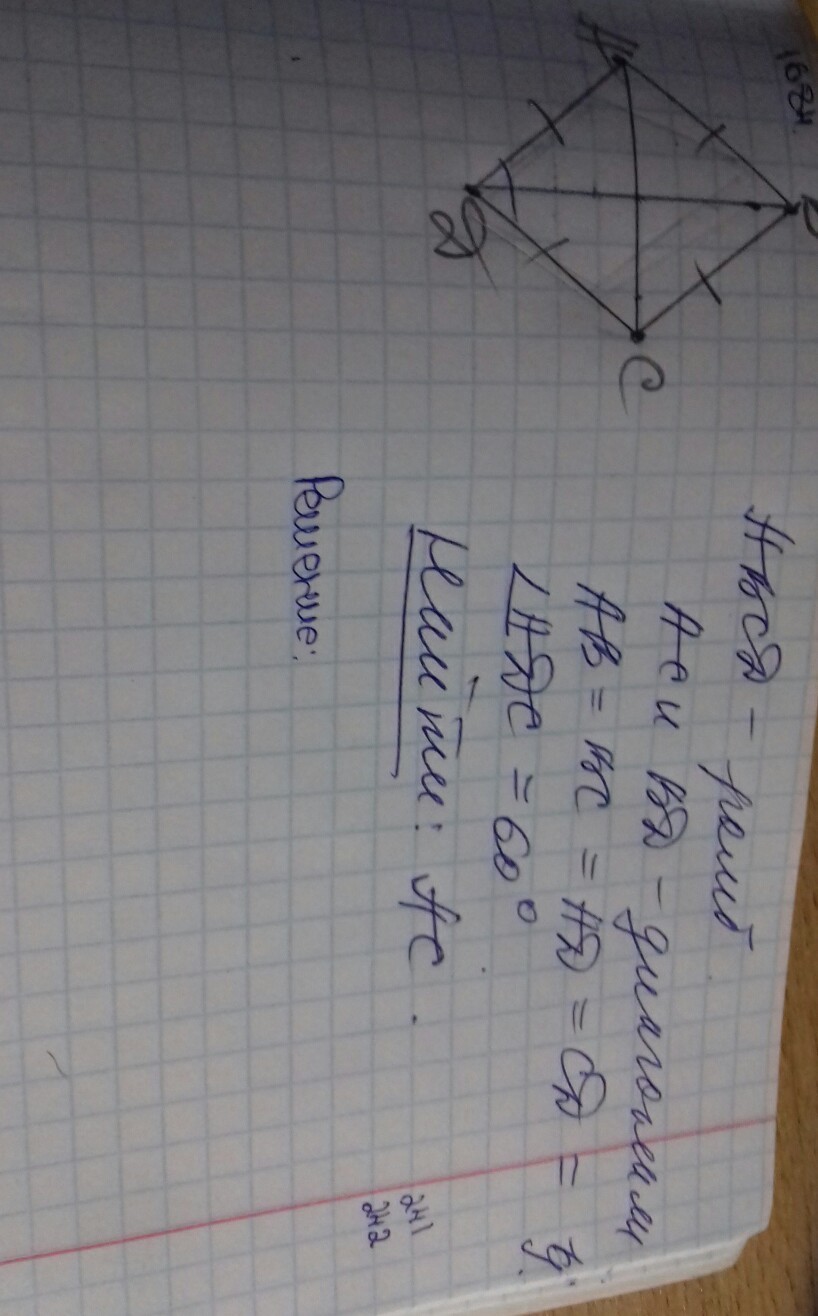 1684.
A
B
C
D
ABCD - ромб
AC и BD - диагонали
AB = BC = AD = CD =
∠ADC = 60°
Найти: AC.
Решение:
241
242